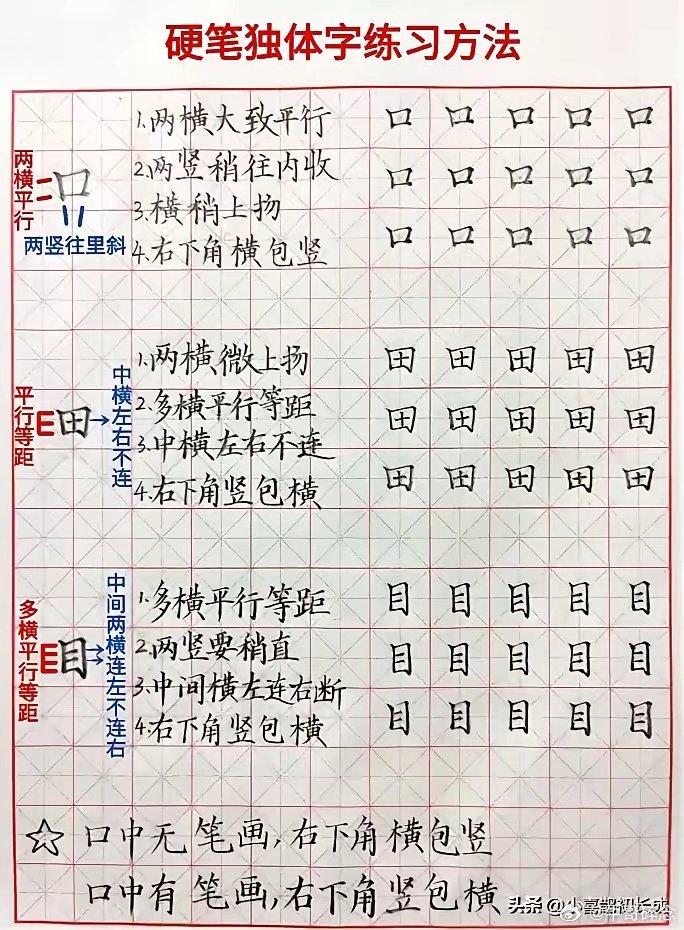 硬笔独体字练习方法
两横平行
口
两竖往里斜
1.两横大致平行
2.两竖稍往内收
3.横稍上扬
4.右下角横包竖
口 口 口 口 口
口 口 口 口 口
口 口 口 口 口
平行等距
田
中横左右不连
1.两横微上扬
2.多横平行等距
3.中横左右不连
4.右下角竖包横
田 田 田 田 田
田 田 田 田 田
田 田 田 田 田
多横平行等距
目
中间两横连左不连右
1.多横平行等距
2.两竖要稍直
3.中间横左连右断
4.右下角竖包横
目 目 目 目 目
目 目 目 目 目
目 目 目 目 目
☆ 口中无笔画,右下角横包竖
口中有笔画,右下角竖包横
头条